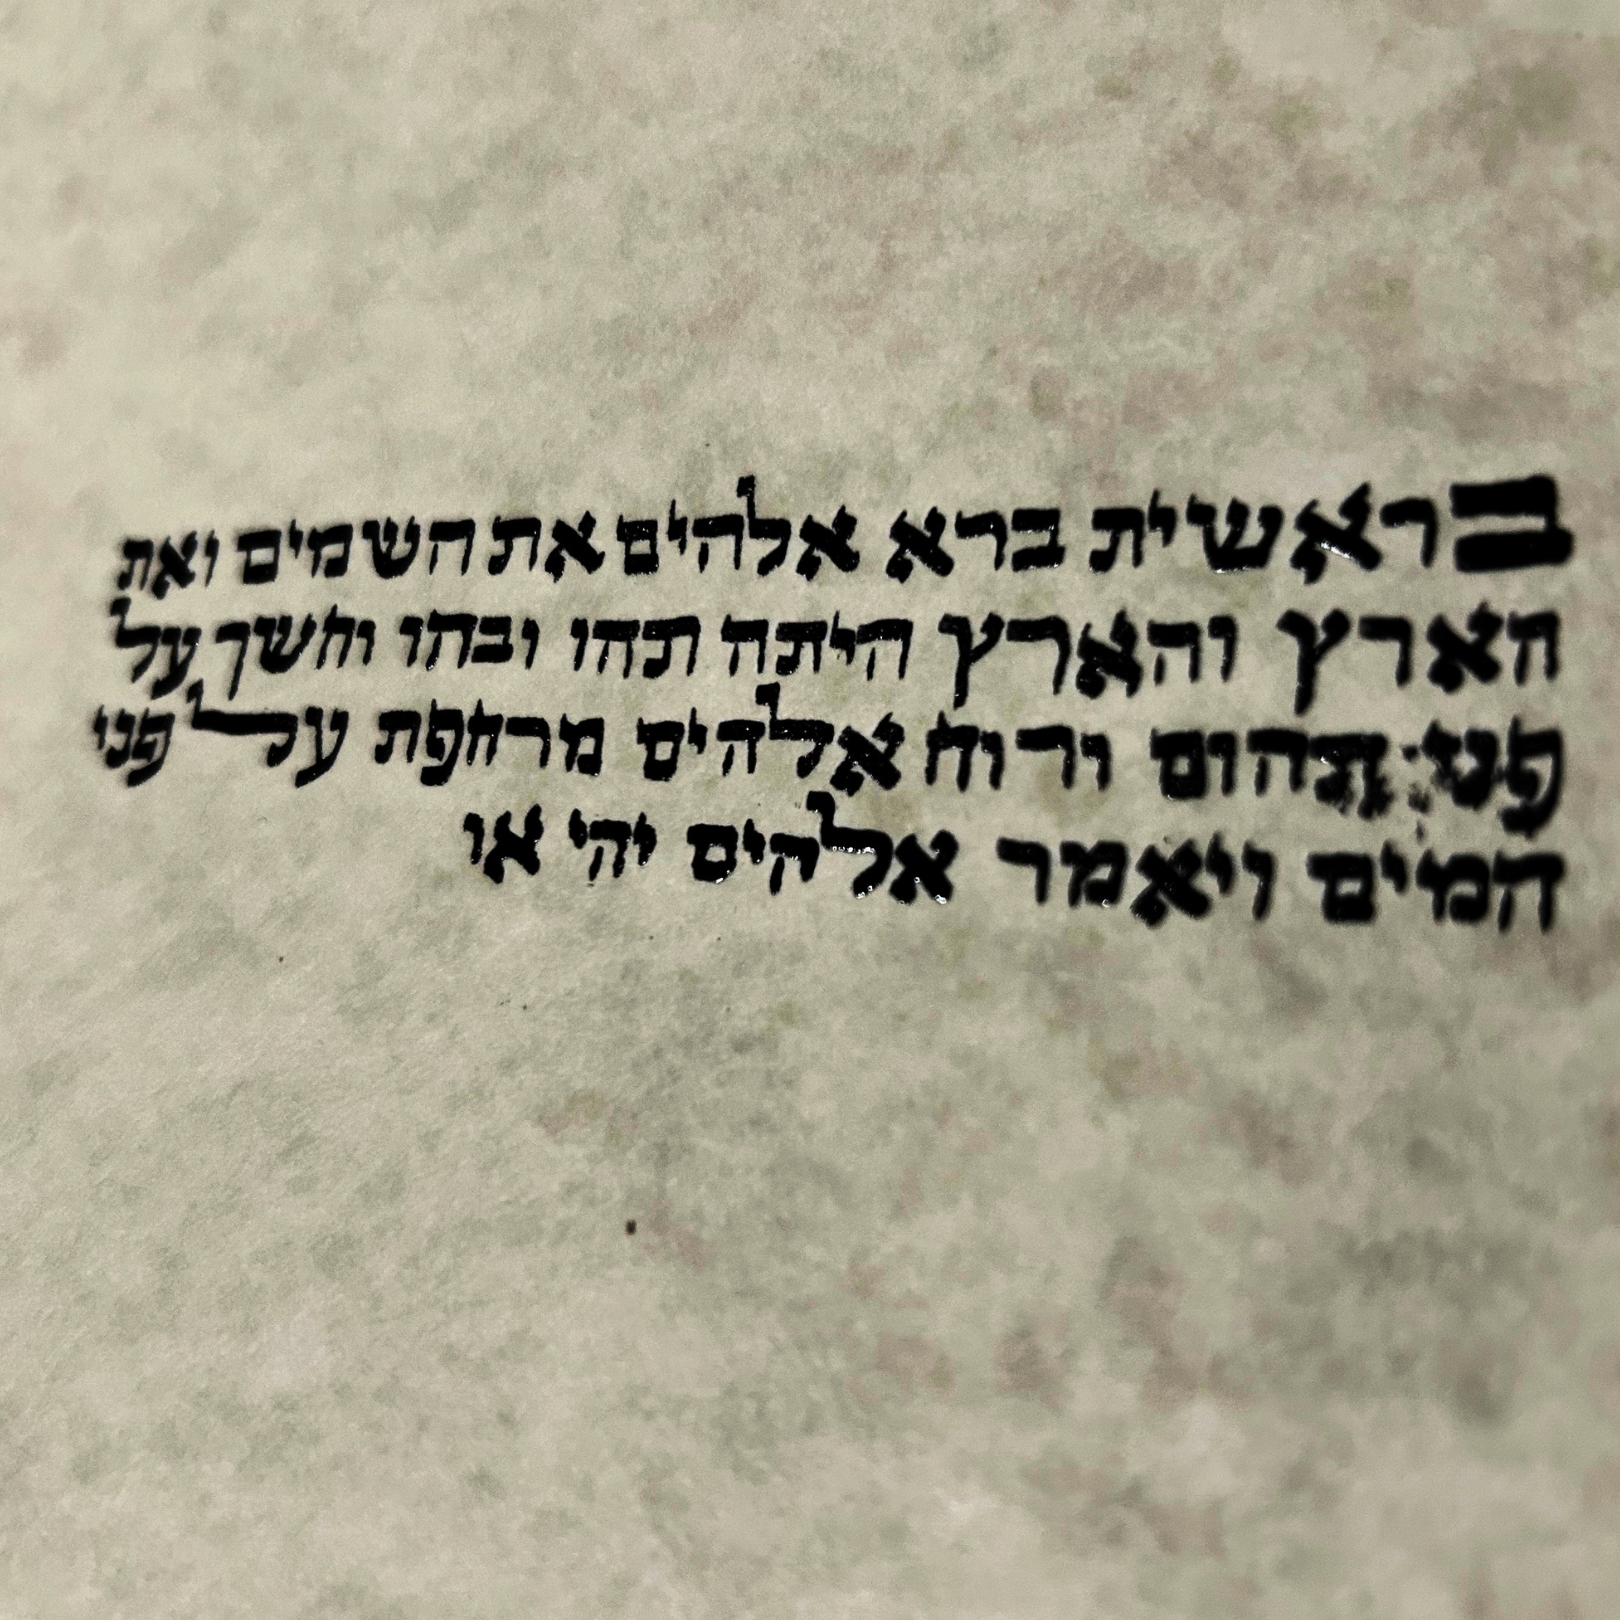 בראשית ברא אלהים את השמים ואת
הארץ והארץ היתה תהו ובהו וחשך על
פני תהום ורוח אלהים מרחפת על פני
המים ויאמר אלהים יהי או